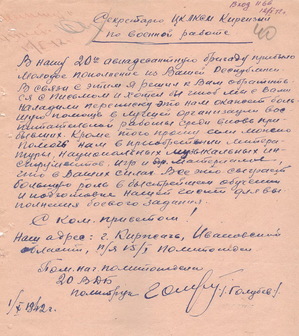 Вход 1166
Секретарю ЦК ЛКСМ Киргизии
по военной работе
40
В нашу 20ю авиадесантную бригаду прибыло
молодое поколение из Вашей Республики
В связи с этим я решил к Вам обратить
ся с письмом и хотел бы чтоб мы с Вами
наладили переписку это нам окажет боль
шую помощь в организации вос
питательной работы среди вновь при
бывших Кроме того просил если можно
помочь нам в приобретении литера
туры, национальных музыкальных ин
струментов игр и др. материалов,
это в Ваших силах Все это сыграет
большую роль в быстрейшем обучении
и подготовки нашей части для вы
полнения боевого задания.
С ком. приветом!
Наш адрес: г. Киржач, Ивановской
области, п/я 15/1 политотдел
Пом. нач политотдела
20 ВДБ
политрук /Голубев/
1/X 1942 г.